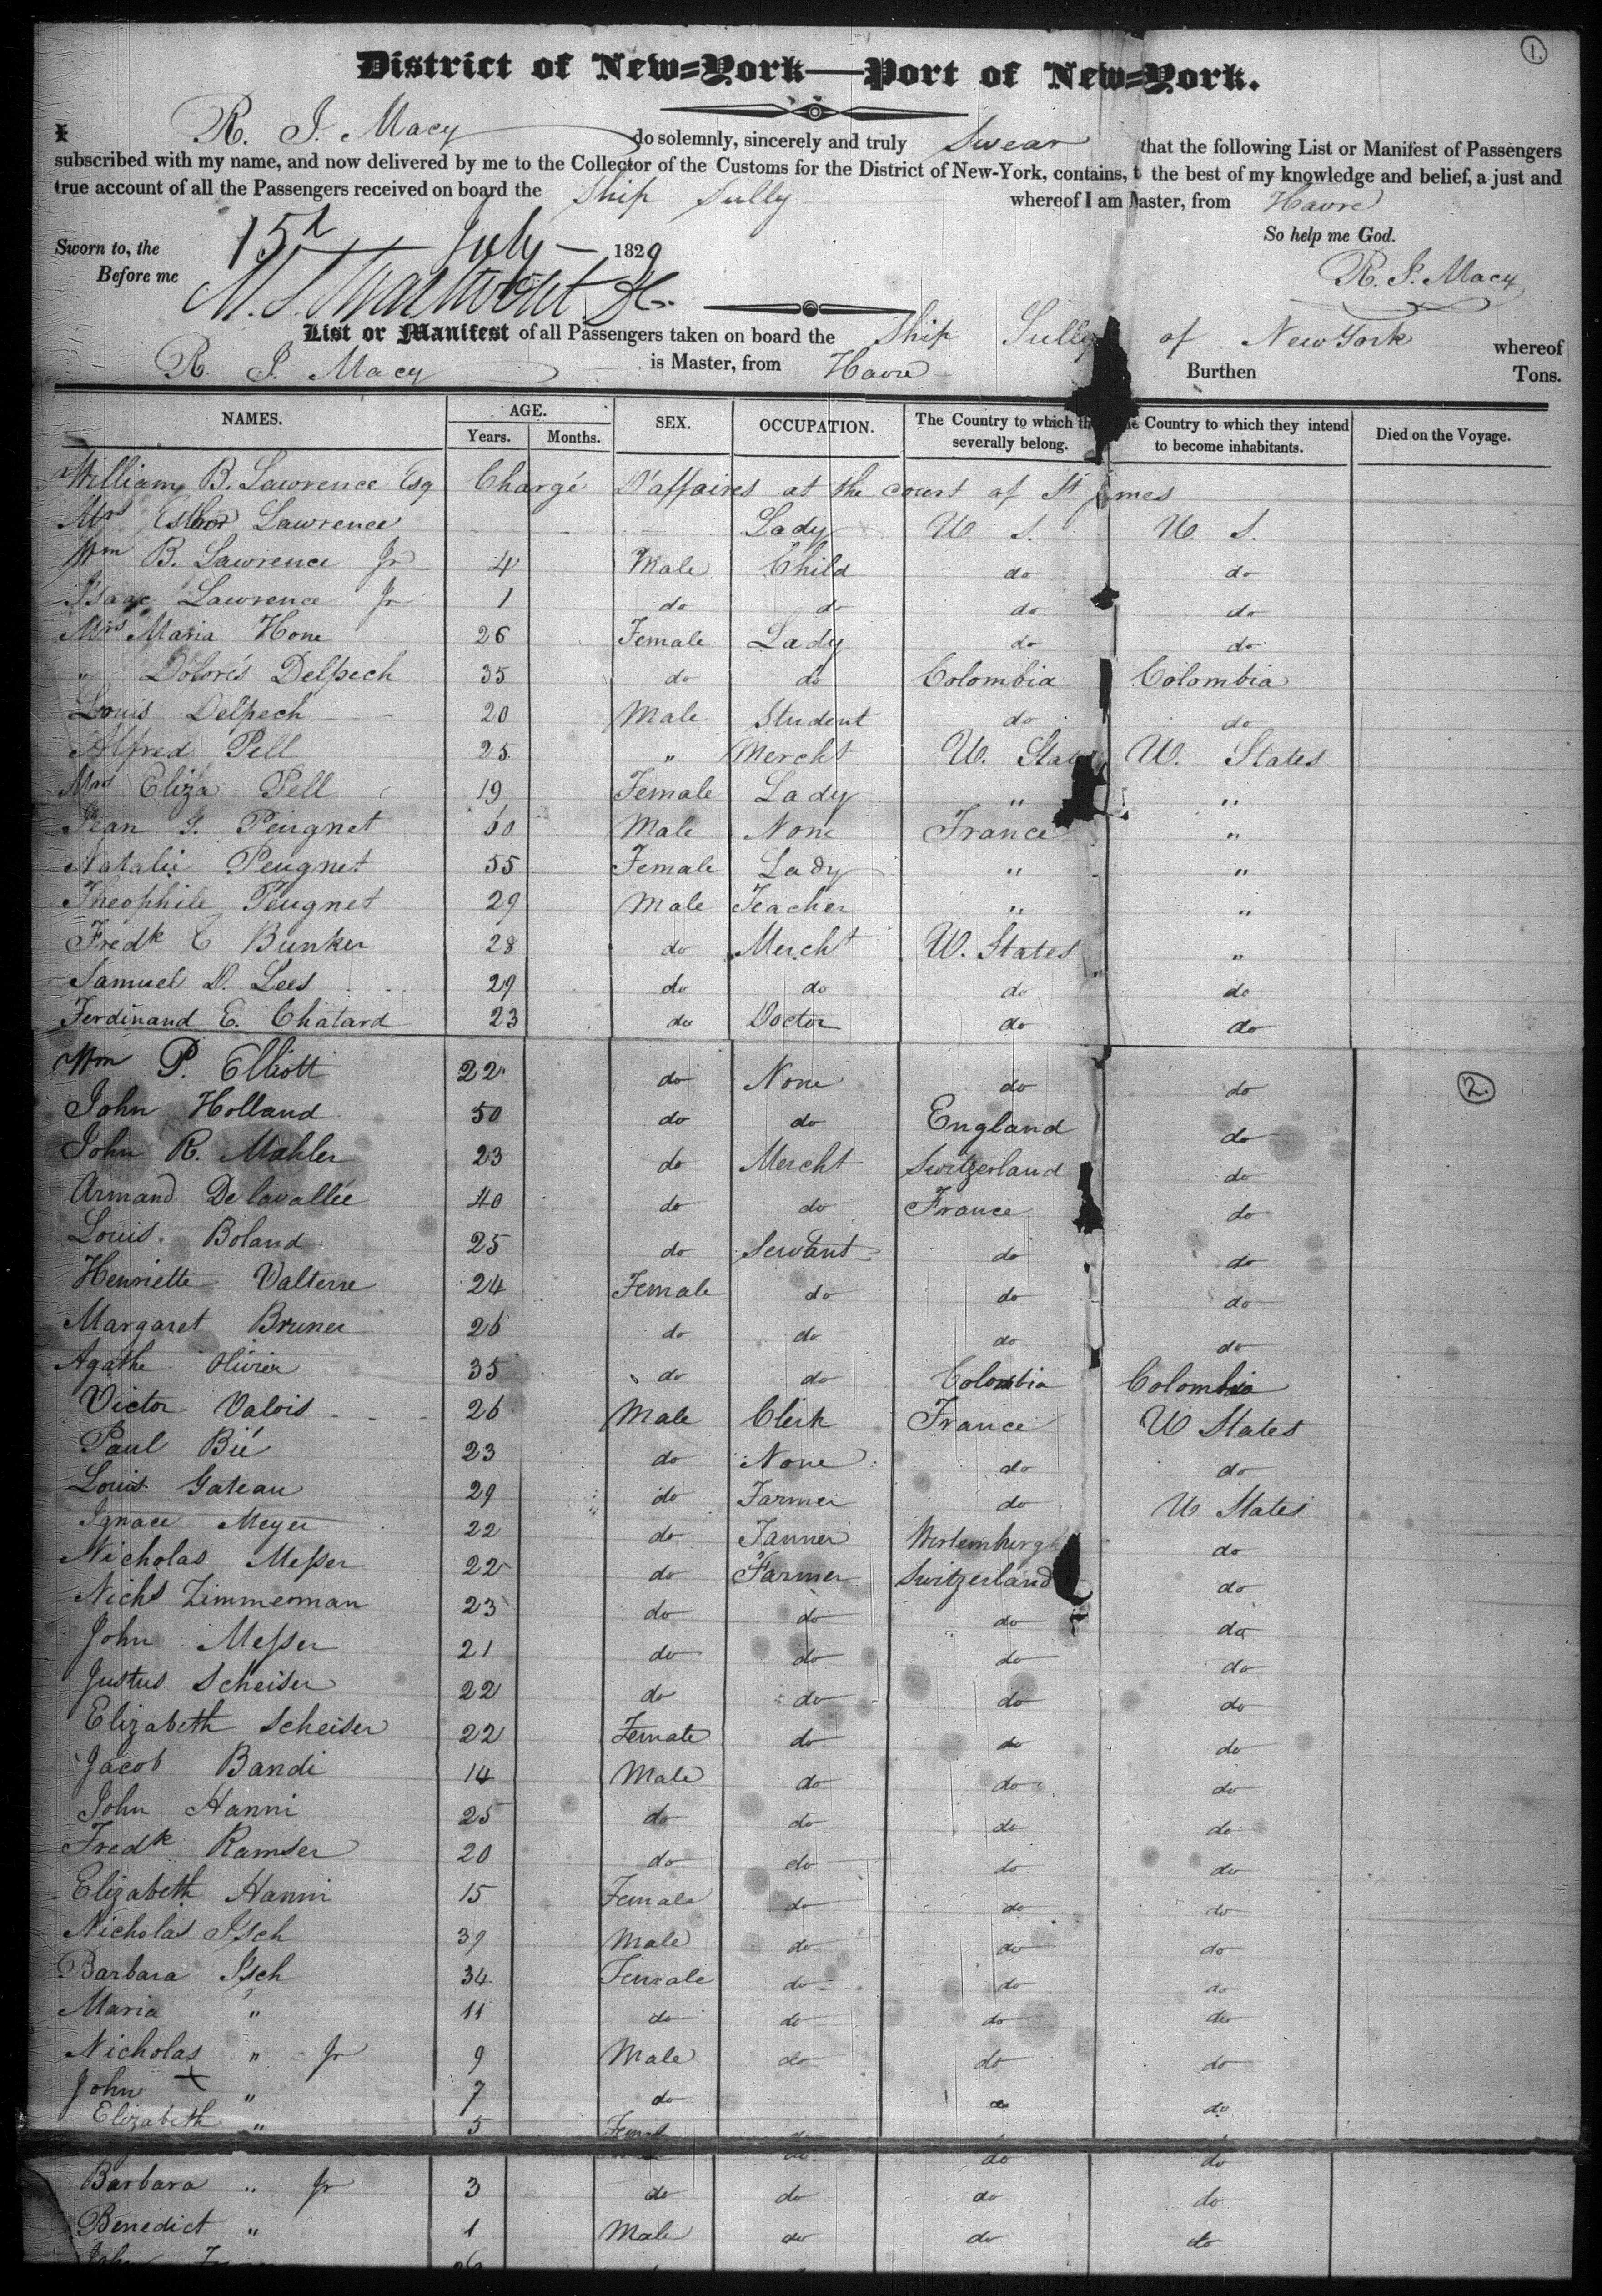 1.
District of New-York—Port of New-York.
I R. J. Macy do solemnly, sincerely and truly Swear that the following List or Manifest of Passengers
subscribed with my name, and now delivered by me to the Collector of the Customs for the District of New-York, contains, t the best of my knowledge and belief, a just and
true account of all the Passengers received on board the Ship Sully whereof I am Master, from Havre
So help me God.
Sworn to, the 15h July 1829
Before me
R. J. Macy
List or Manifest of all Passengers taken on board the Ship Sully of New York whereof
R. J. Macy is Master, from Havre Burthen Tons.
NAMES. AGE. Years. Months. SEX. OCCUPATION. The Country to which th severally belong. he Country to which they intend to become inhabitants. Died on the Voyage.
William B. Lawrence Esq Chargé D'affaires at the court of St James
Mrs Esther Lawrence Lady U S. U S.
Wm B. Lawrence Jr 4 Male Child do do
Isaac Lawrence Jr 1 do do do do
Mrs Maria Hone 26 Female Lady do do
" Dolorés Delpech 35 do do Colombia Colombia
Louis Delpech 20 Male Student do do
Alfred Pell 25 " Mercht U. States U. States
Mrs Eliza Pell 19 Female Lady " "
Jean G. Peugnet 60 Male None France "
Natalie Peugnet 55 Female Lady " "
Theophile Peugnet 29 Male Teacher " "
Fredk C Bunker 28 do Mercht U. States "
Samuel D. Lees 29 do do do do
Ferdinand E. Chatard 23 do Doctor do do
Wm P. Elliott 22 do None do do
2.
John Holland 50 do do England do
John R. Mahler 23 do Mercht Switzerland do
Armand Delavallée 40 do do France do
Louis Boland 25 do Servant do do
Henriette Valterre 24 Female do do do
Margaret Bruner 26 do do do do
Agathe Olivier 35 do do Colombia Colombia
Victor Valois 26 Male Clerk France U States
Paul Bié 23 do None do do
Louis Gateau 29 do Farmer do U States
Ignace Meyer 22 do Tanner Wirtemburg do
Nicholas Messer 22 do Farmer Switzerland do
Nichs Zimmerman 23 do do do do
John Messer 21 do do do do
Justus Scheiser 22 do do do do
Elizabeth Scheiser 22 Female do do do
Jacob Bandi 14 Male do do do
John Hanni 25 do do do do
Fredk Ramser 20 do do do do
Elizabeth Hanni 15 Female do do do
Nicholas Isch 39 Male do do do
Barbara Isch 34 Female do do do
Maria " 11 do do do do
Nicholas " Jr 9 Male do do do
John " 7 do do do
Elizabeth " 5 Femal do do do
Barbara " Jr 3 do do do do
Benedict " 1 Male do do do
John 26